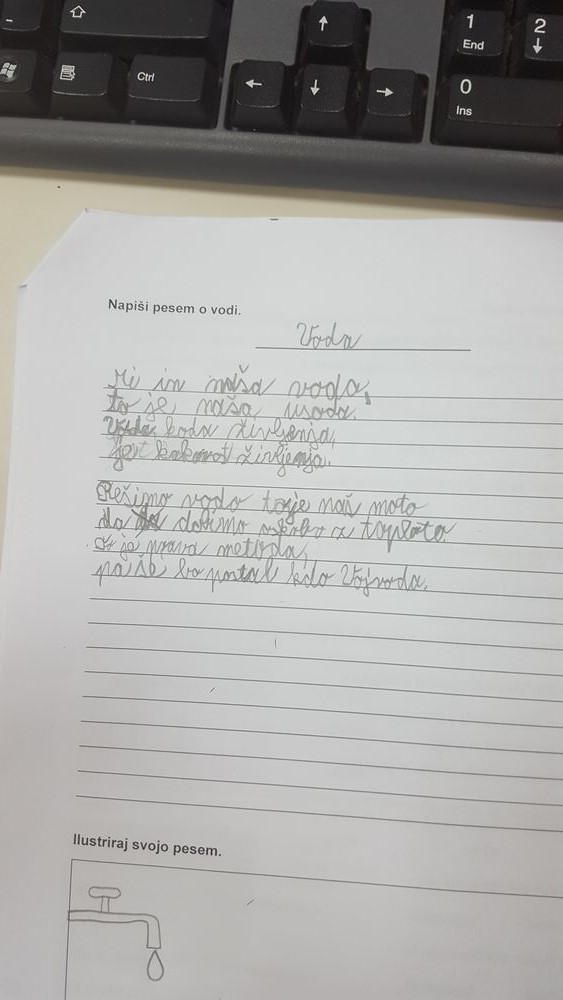 Ctrl
1
End
2
0
Ins
Napiši pesem o vodi.
Voda
Mi in naša voda,
to je, naša usoda.
Voda koda življenja,
je kakor življenja.
Rešimo vodo to je naš moto
da dobimo z toploto
je prava metoda,
pa še bo postal kdo Vojvoda.
Ilustriraj svojo pesem.